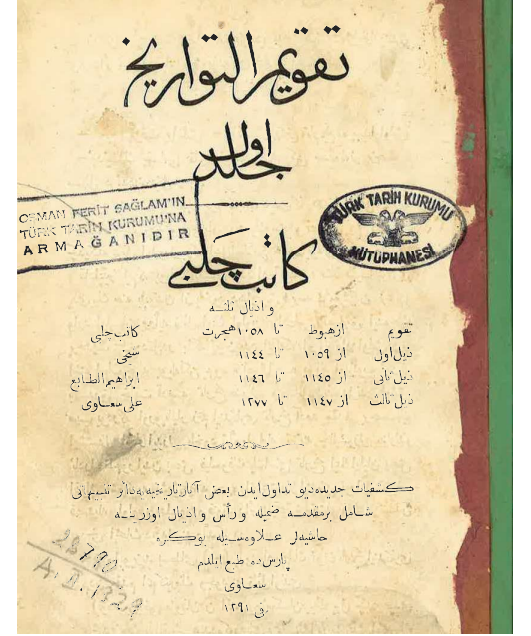 تقويم التواريخ
جلد اول
OSMAN FERİT SAĞLAM'IN
TÜRK TARİH KURUMU'NA
ARMAĞANIDIR
TÜRK TARİH KURUMU
KÜTÜPHANESİ
كاتب چلبى
و اذيال ثلثه
تقويم ازهبوط تا ١٠٥٨ هجرت كاتب چلبى
ذيل اول از ١٠٥٩ تا ١١٤٤ شيخى
ذيل ثانى از ١١٤٥ تا ١١٤٦ ابراهيم الطابع
ذيل ثالث از ١١٤٧ تا ١٢٧٧ على سعاوى
كشفيات جديده ديو تداول ايدن بعض آثار تاريخيه يه دائر تنبيهاتى
شامل بر مقدمه ضميله و رأس و اذيال اوزرينه
حاشيه لر علاوه سيله بو كره
پارس ده طبع ايلدم
سعاوى
فى ١٢٩١
28790
A.II.1329